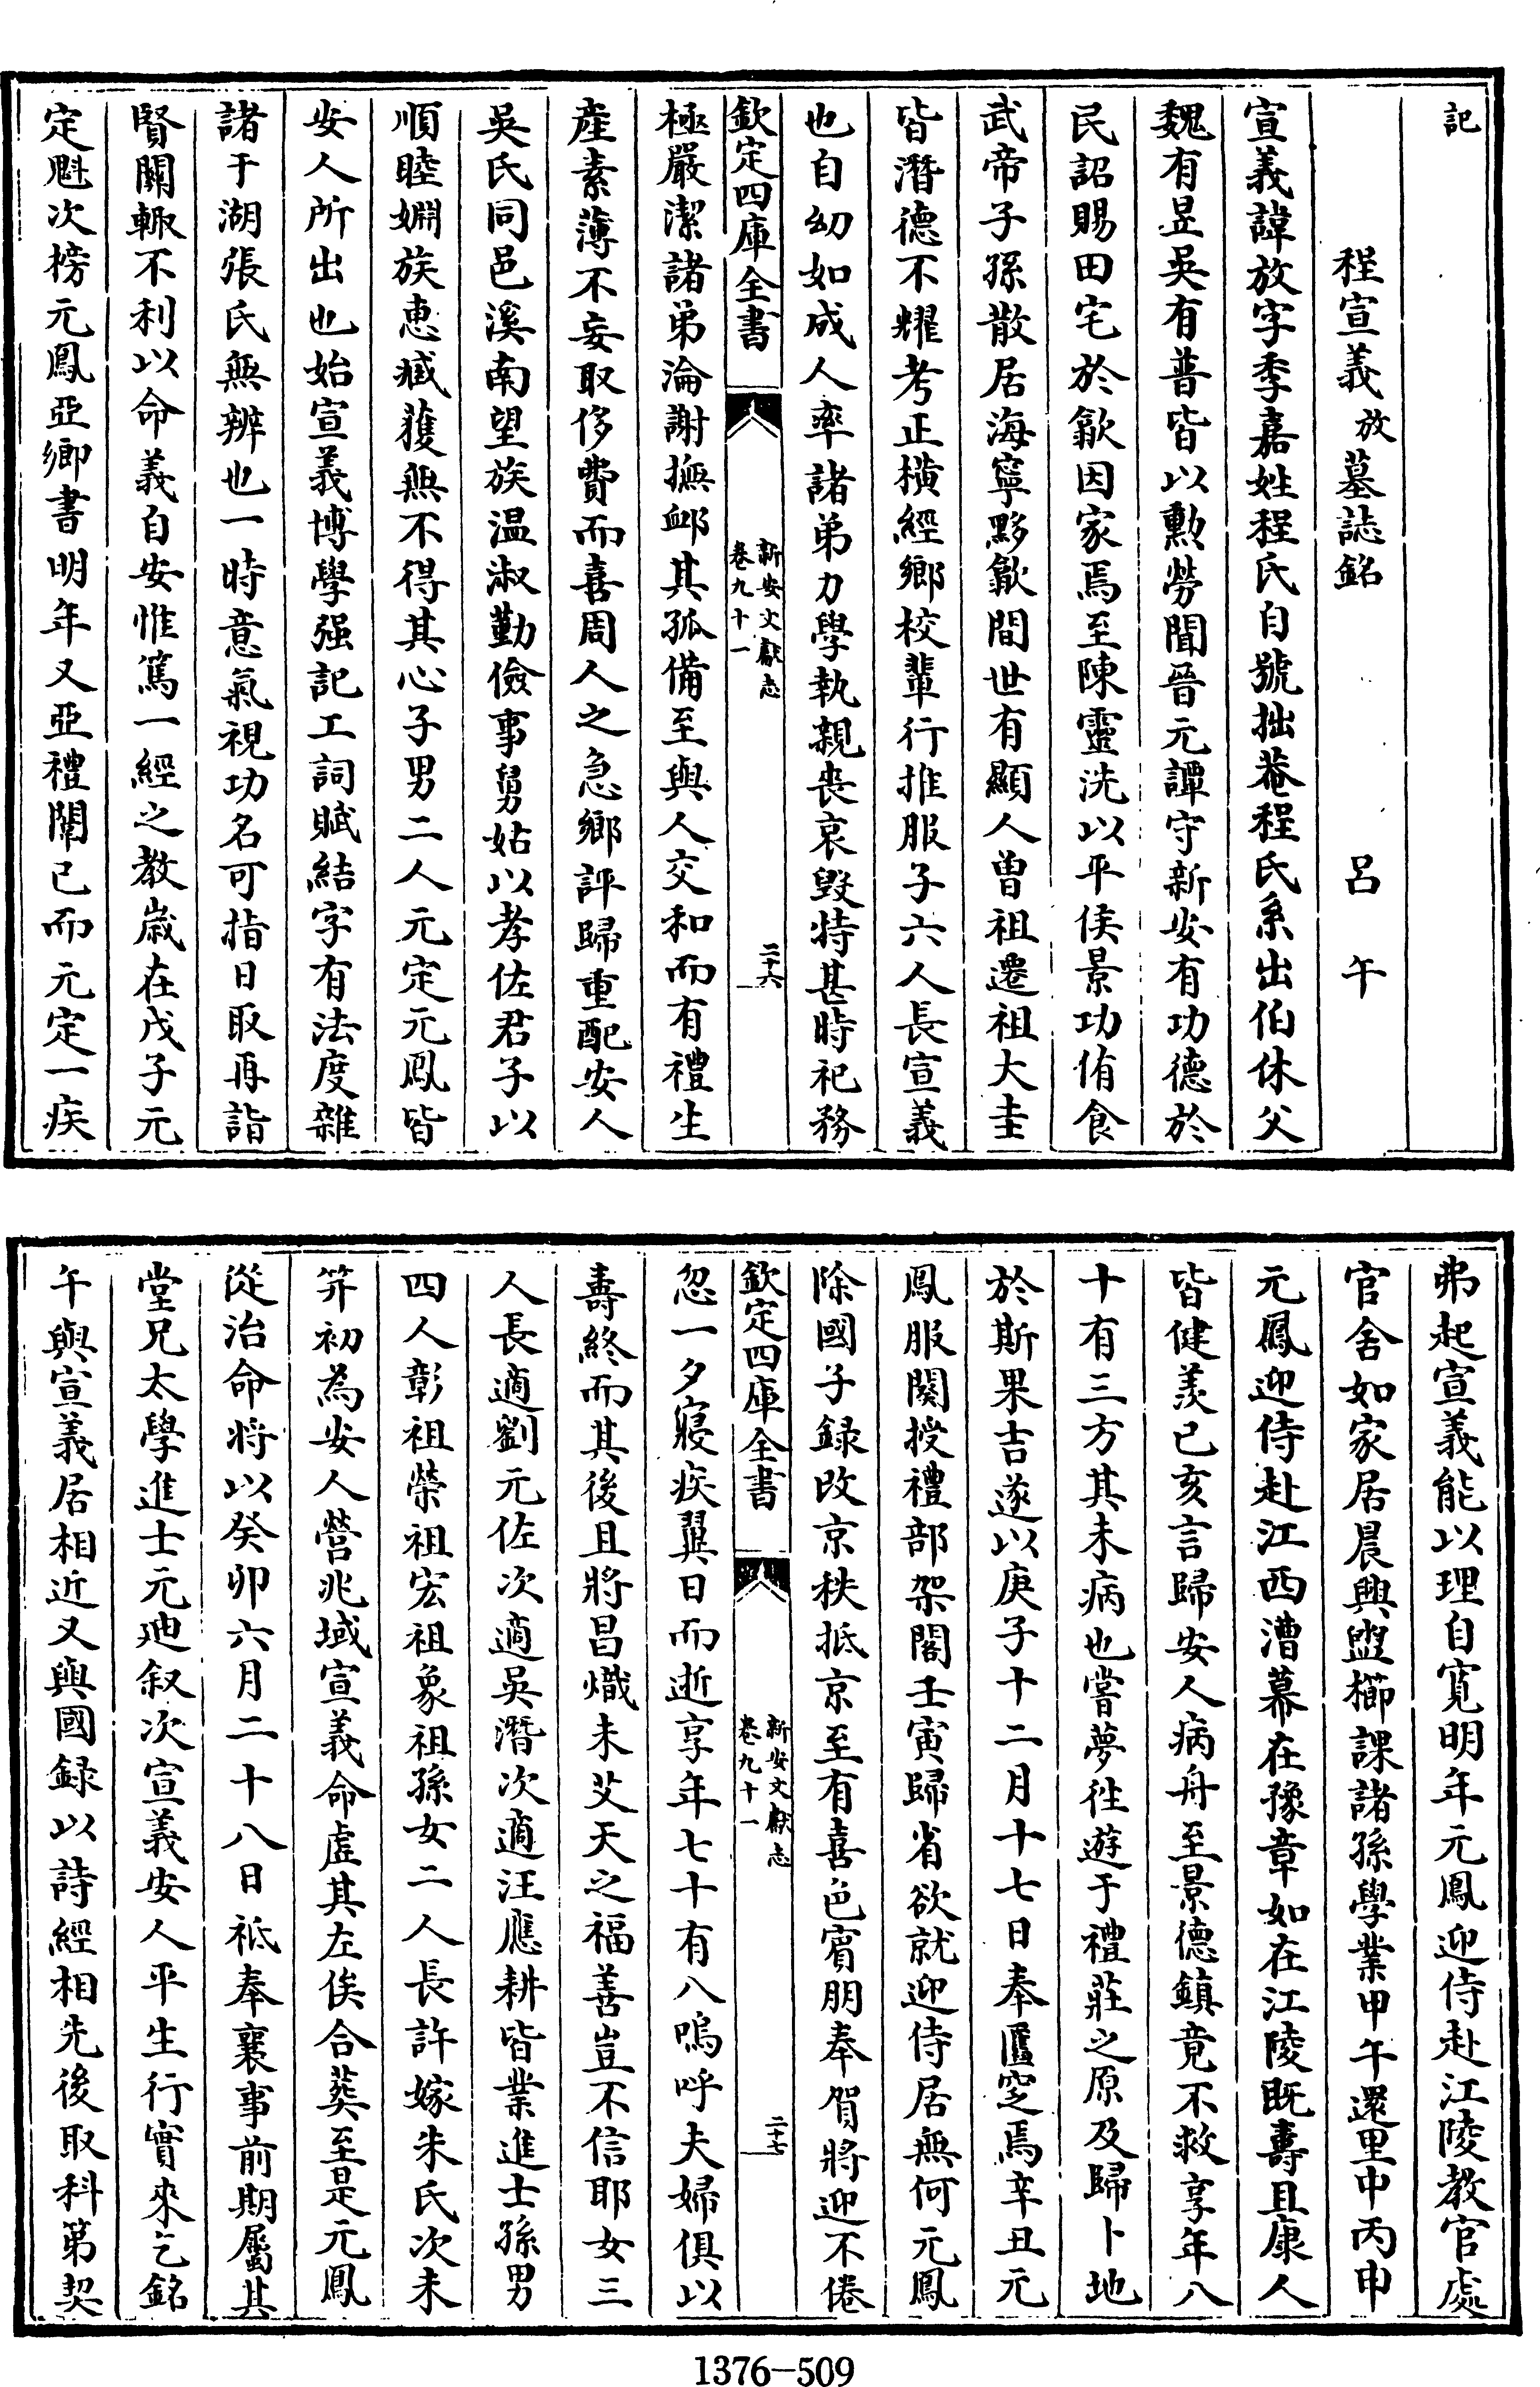 記
程宣義放墓誌銘　呂午
宣義諱放字季嘉姓程氏自號拙菴程氏系出伯休父
魏有昱吳有普皆以勲勞聞晉元譚守新安有功德於
民詔賜田宅於歙因家焉至陳靈洗以平侯景功侑食
武帝子孫散居海寧黟歙間世有顯人曽祖遷祖大圭
皆潛德不耀考正横經鄉校輩行推服子六人長宣義
也自幼如成人率諸弟力學執親喪哀毀特甚時祀務
欽定四庫全書　新安文獻志卷九十一　二十六
極嚴潔諸弟淪謝撫䘏其孤備至與人交和而有禮生
產素薄不妄取侈費而喜周人之急鄉評歸重配安人
吳氏同邑溪南望族温淑勤儉事舅姑以孝佐君子以
順睦婣族恵臧獲無不得其心子男二人元定元鳳皆
安人所出也始宣義博學强記工詞賦結字有法度雜
諸于湖張氏無辨也一時意氣視功名可指日取再詣
賢關輙不利以命義自安惟篤一經之教嵗在戊子元
定魁次榜元鳳亞鄉書明年又亞禮闈已而元定一疾
弗起宣義能以理自寛明年元鳳迎侍赴江陵教官處
官舍如家居晨興盥櫛課諸孫學業甲午還里中丙申
元鳳迎侍赴江西漕幕在豫章如在江陵既壽且康人
皆健羡已亥言歸安人病舟至景德鎮竟不救享年八
十有三方其未病也嘗夢徃遊于禮莊之原及歸卜地
於斯果吉遂以庚子十二月十七日奉匶窆焉辛丑元
鳳服闋授禮部架閣壬寅歸省欲就迎侍居無何元鳳
除國子録改京秩抵京至有喜色賔朋奉賀將迎不倦
欽定四庫全書　新安文獻志卷九十一　二十七
忽一夕寢疾翼日而逝享年七十有八嗚呼夫婦俱以
壽終而其後且將昌熾未艾天之福善豈不信耶女三
人長適劉元佐次適吳潛次適汪應耕皆業進士孫男
四人彰祖榮祖宏祖象祖孫女二人長許嫁朱氏次未
笄初為安人營兆域宣義命虚其左俟合葬至是元鳳
從治命將以癸卯六月二十八日祗奉襄事前期屬其
堂兄太學進士元廸叙次宣義安人平生行實來乞銘
午與宣義居相近又與國録以詩經相先後取科第契
1376-509